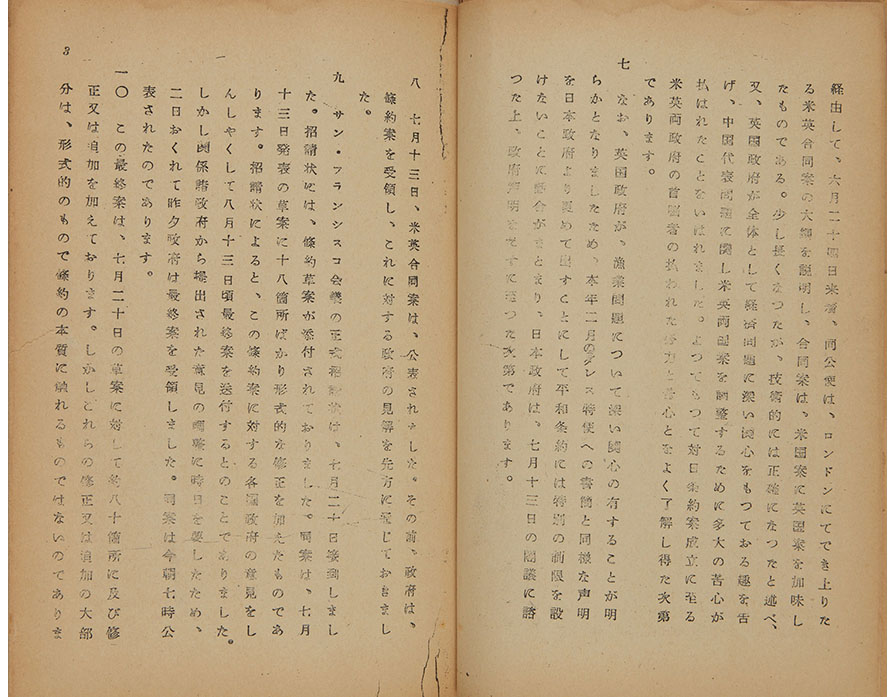 経由して、六月二十四日来着、同公使は、ロンドンにてでき上りた
る米英合同案の大綱を説明し、合同案は、米国案に英国案を加味し
たものである。少し長くなつたが、技術的には正確になつたと述べ、
又、英国政府が全体として経済問題に深い関心をもつておる趣を告
げ、中国代表問題に関し米英両国案を調整するために多大の苦心が
払はれたことをいはれました。よつてもつて対日条約案成立に至る
米英両政府の首脳者の払われた努力と苦心とをよく了解し得た次第
であります。
七 なお、英国政府が、漁業問題について深い関心の有することが明
らかとなりましたため、本年二月のダレス特使への書簡と同様な声明
を日本政府より更めて出すことにして平和条約には特別の制限を設
けないことに話合がまとまり、日本政府は、七月十三日の閣議に諮
つた上、政府声明を発すに至つた次第であります。
八 七月十三日、米英合同案は、公表されました。その前、政府は、
條約案を受領し、これに対する政府の見解を先方に通じておきまし
た。
九 サン・フランシスコ会議の正式招請状は、七月二十日接到しまし
た。招請状には、條約草案が添付されておりました。同案は、七月
十三日発表の草案に十八箇所ばかり形式的な修正を加えたものであ
ります。招請状によると、この條約案に対する各国政府の意見をし
んしやくして八月十三日頃最終案を送付するとのことでありました。
しかし関係諸政府から提出された意見の調整に時日を要したため、
二日おくれて昨夕政府は最終案を受領しました。同案は今朝七時公
表されたのであります。
一〇 この最終案は、七月二十日の草案に対して約八十箇所に及び修
正又は追加を加えております。しかしこれらの修正又は追加の大部
分は、形式的のもので條約の本質に触れるものではないのでありま
3